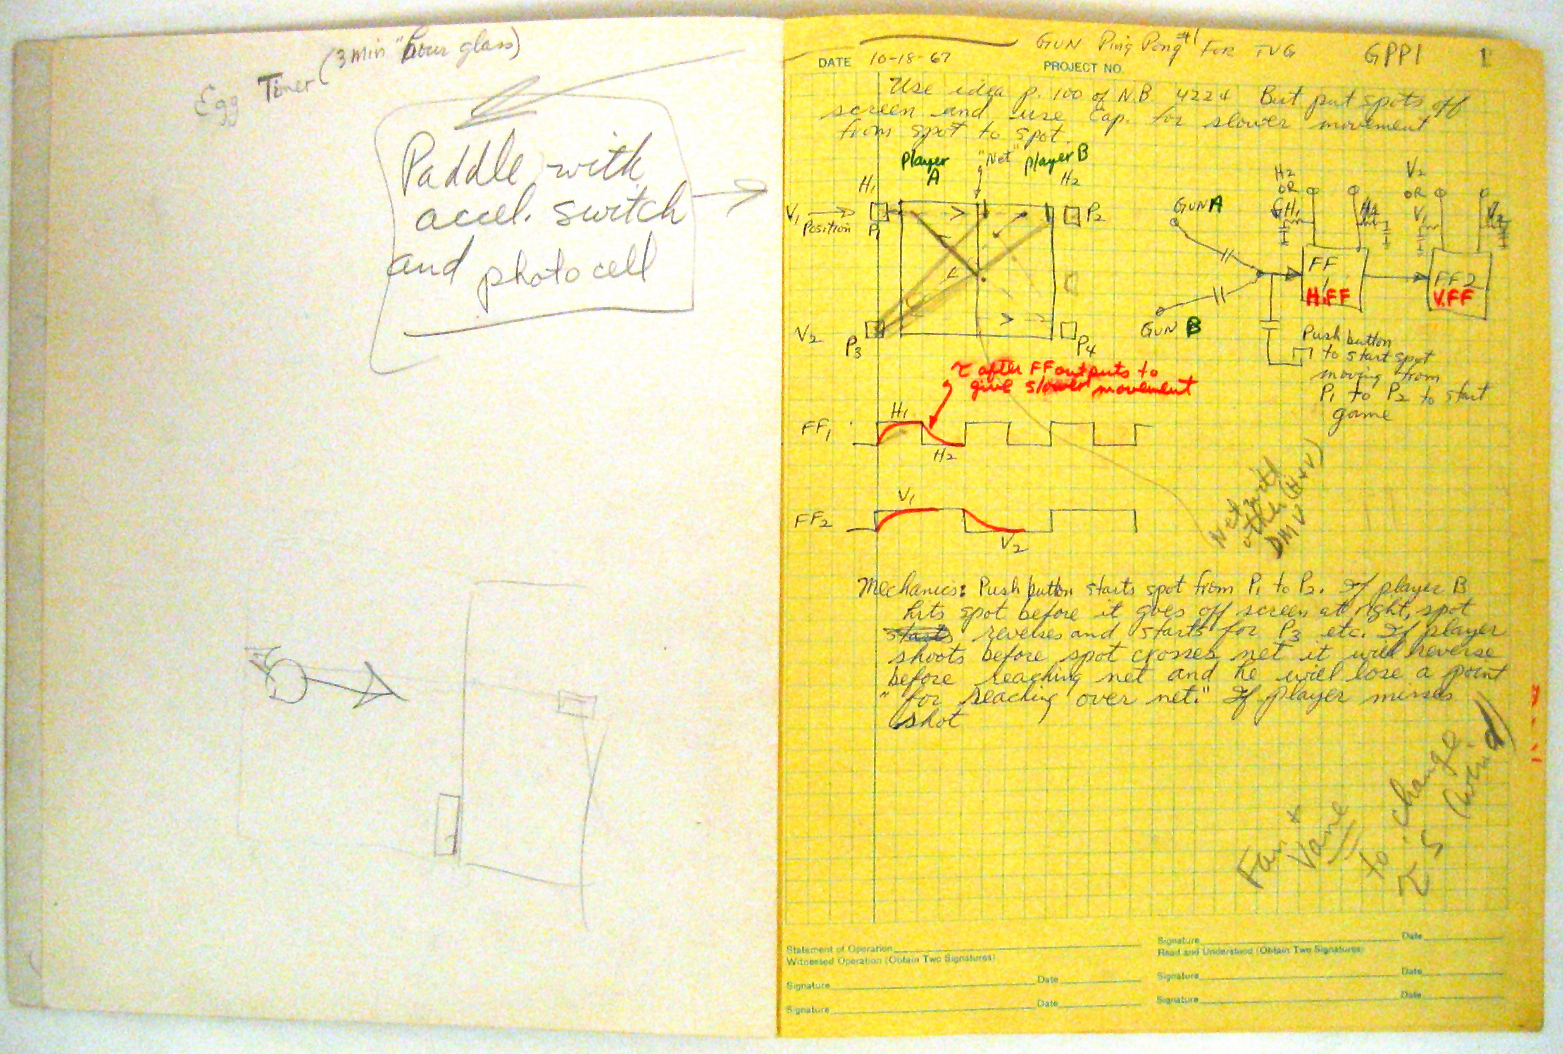 Egg Timer (3 min "hour glass)
Paddle with
accel. switch
and photocell
DATE 10-18-67
GUN Ping Pong #1 FOR TVG GPP1 1
PROJECT NO.
Use idea p. 100 of N.B. 4224 But put spots off
screen and use Cap. for slower movement
from spot to spot.
Player
A
"Net"
player B
H1
H2
V1
Position
P1
P2
V2
P3
P4
GUN A
GUN B
H2
OR
H1
V2
OR
V1
V2
FF
1
H.FF
FF2
V.FF
Push button
to start spot
moving from
P1 to P2 to start
game
τ after FF outputs to
give slower movement
FF1
H1
H2
FF2
V1
V2
Net with
other (H+V)
DMV
Mechanics: Push button starts spot from P1 to P2. If player B
hits spot before it goes off screen at right, spot
starts reverses and starts for P3 etc. If player
shoots before spot crosses net it will reverse
before reaching net and he will lose a point
"for reaching over net." If player misses
shot
Fan +
Vane
to change
τ's (wind)
Statement of Operation
Witnessed Operation (Obtain Two Signatures)
Signature Date
Signature Date
Signature Date
Read and Understood (Obtain Two Signatures)
Signature Date
Signature Date